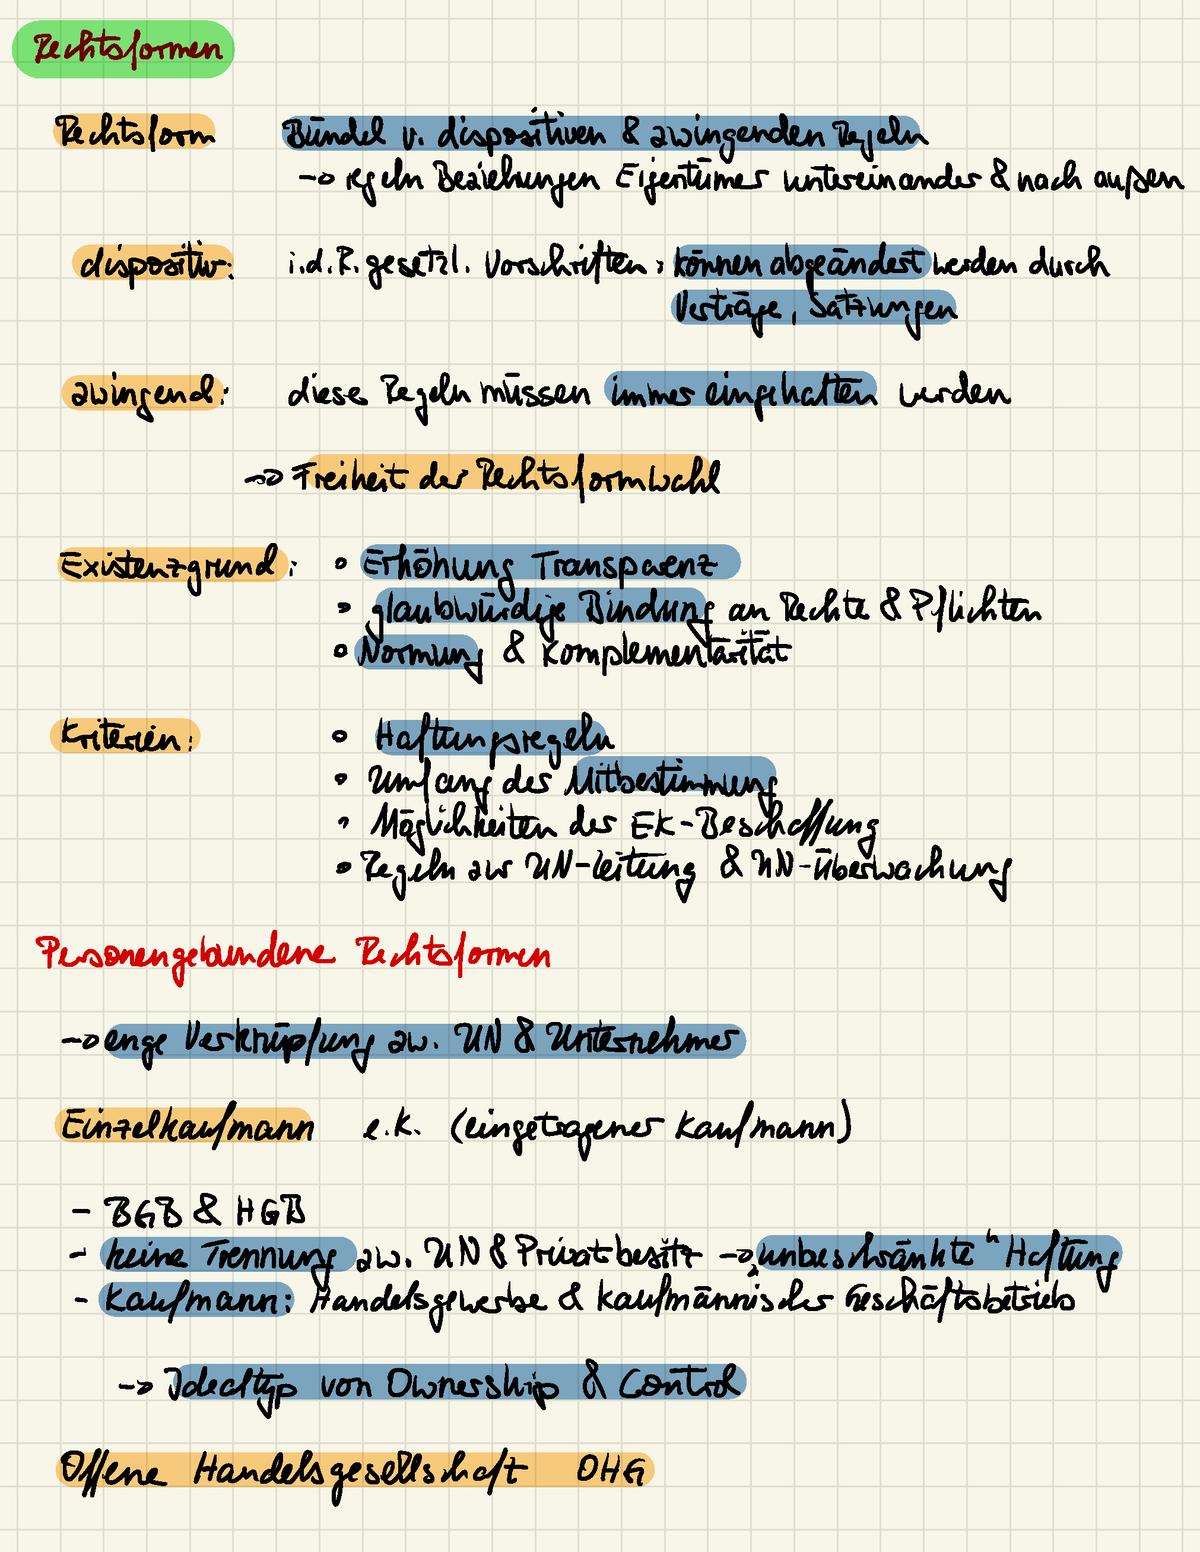 Rechtsformen
Rechtsform Bündel v. dispositiven & zwingenden Regeln
→ regeln Beziehungen Eigentümer untereinander & nach außen
dispositiv: i.d.R. gesetzl. Vorschriften, können abgeändert werden durch
Verträge, Satzungen
zwingend: diese Regeln müssen immer eingehalten werden
→ Freiheit der Rechtsformwahl
Existenzgrund: • Erhöhung Transparenz
• glaubwürdige Bindung an Rechte & Pflichten
• Normung & Komplementärität
Kriterien: • Haftungsregeln
• Umfang der Mitbestimmung
• Möglichkeiten der EK-Beschaffung
• Regeln zur UN-Leitung & UN-Überwachung
Personengebundene Rechtsformen
→ enge Verknüpfung zw. UN & Unternehmer
Einzelkaufmann e.K. (eingetragener Kaufmann)
- BGB & HGB
- keine Trennung zw. UN & Privatbesitz → „unbeschränkte“ Haftung
- Kaufmann: Handelsgewerbe & kaufmännischer Geschäftsbetrieb
→ Idealtyp von Ownership & Control
Offene Handelsgesellschaft OHG